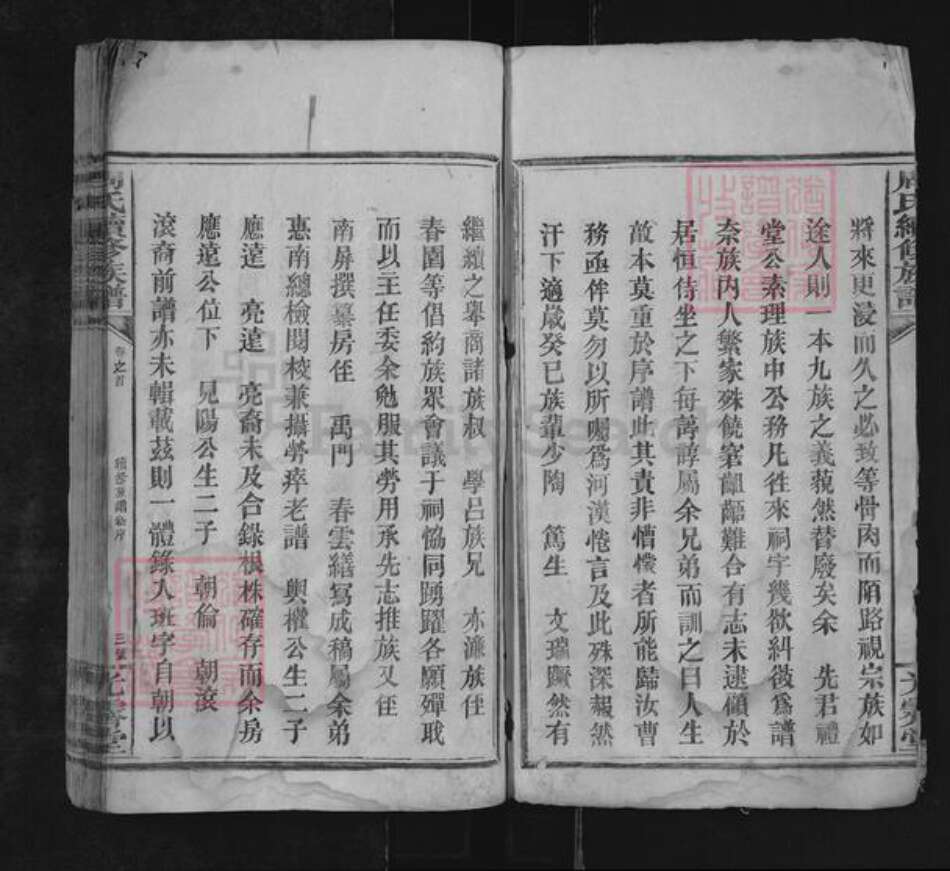 周氏續修族譜
將來更浸而久之必致等骨肉而陌路視宗族如
途人則一本九族之義藐然替廢矣余 先君禮
堂公素理族中公務凡徃來祠宇幾欲糾後爲譜
奈族内人繁家殊饒窘齟齬難合有志未逮顧於
居恒侍坐之下每諄諄屬余兄弟而訓之曰人生
故本莫重於序譜此其責非懵懞者所能歸汝曹
務亟侔莫勿以所囑爲河漢惓言及此殊深赧然
汗下適歲癸已族輩少陶 篤生 文瓏蹶然有
繼續之舉商諸族叔 學呂族兄 亦濂族侄
春園等倡約族眾會議于祠恊同踴躍各願殫耴
而以主任委余勉服其勞用承先志推族又侄
南屏撰纂房侄 禹門 春雲繕寫成稿屬余弟
惠南總檢閱校兼攝勞瘁老譜 興權公生二子
應達 亮達 亮裔未及合錄根株確存而余房
應遠公位下 見陽公生二子 朝倫 朝滾
滾裔前譜亦未輯載茲則一體錄入班字自朝以
周氏續修族譜
卷之首
光霽堂
FamilySearch